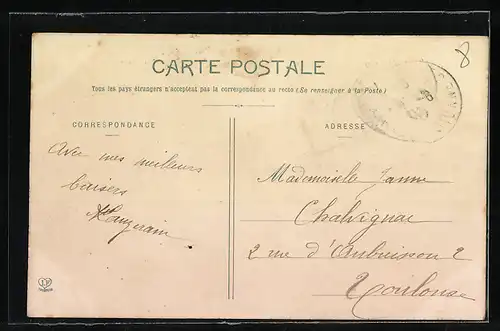 8
CARTE POSTALE
Tous les pays étrangers n'acceptent pas la correspondance au recto (Se renseigner à la Poste)
CORRESPONDANCE
Avec mes meilleurs
baisers
ADRESSE
Mademoiselle Jeanne
Chalvignac
2 rue d'Aubuisson 2
Toulouse